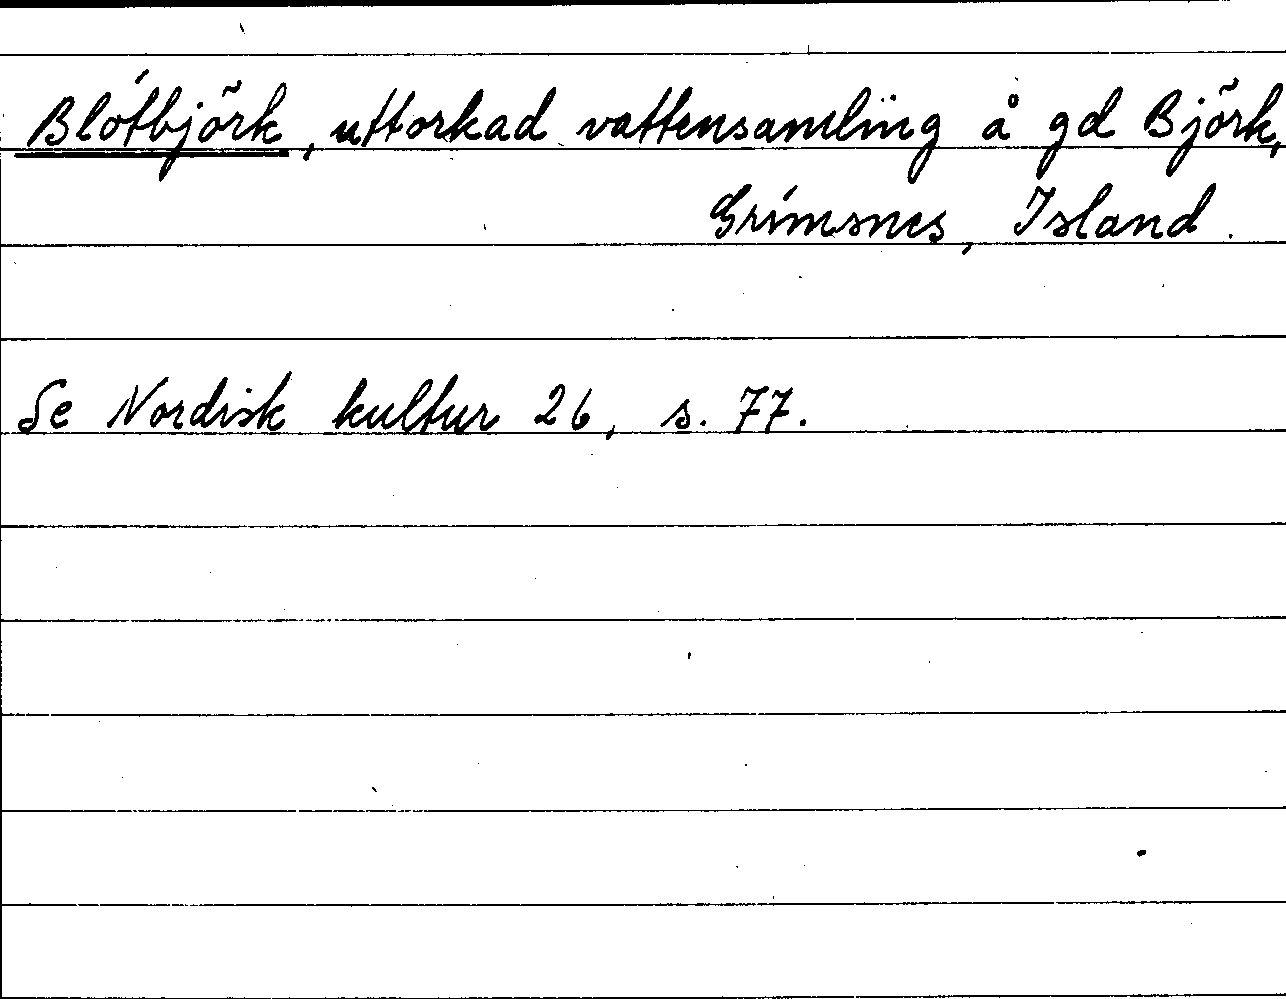 Blótbjörk, uttorkad vattensamling å gd Björk,
Grímsnes, Island.
Se Nordisk kultur 26, s. 77.